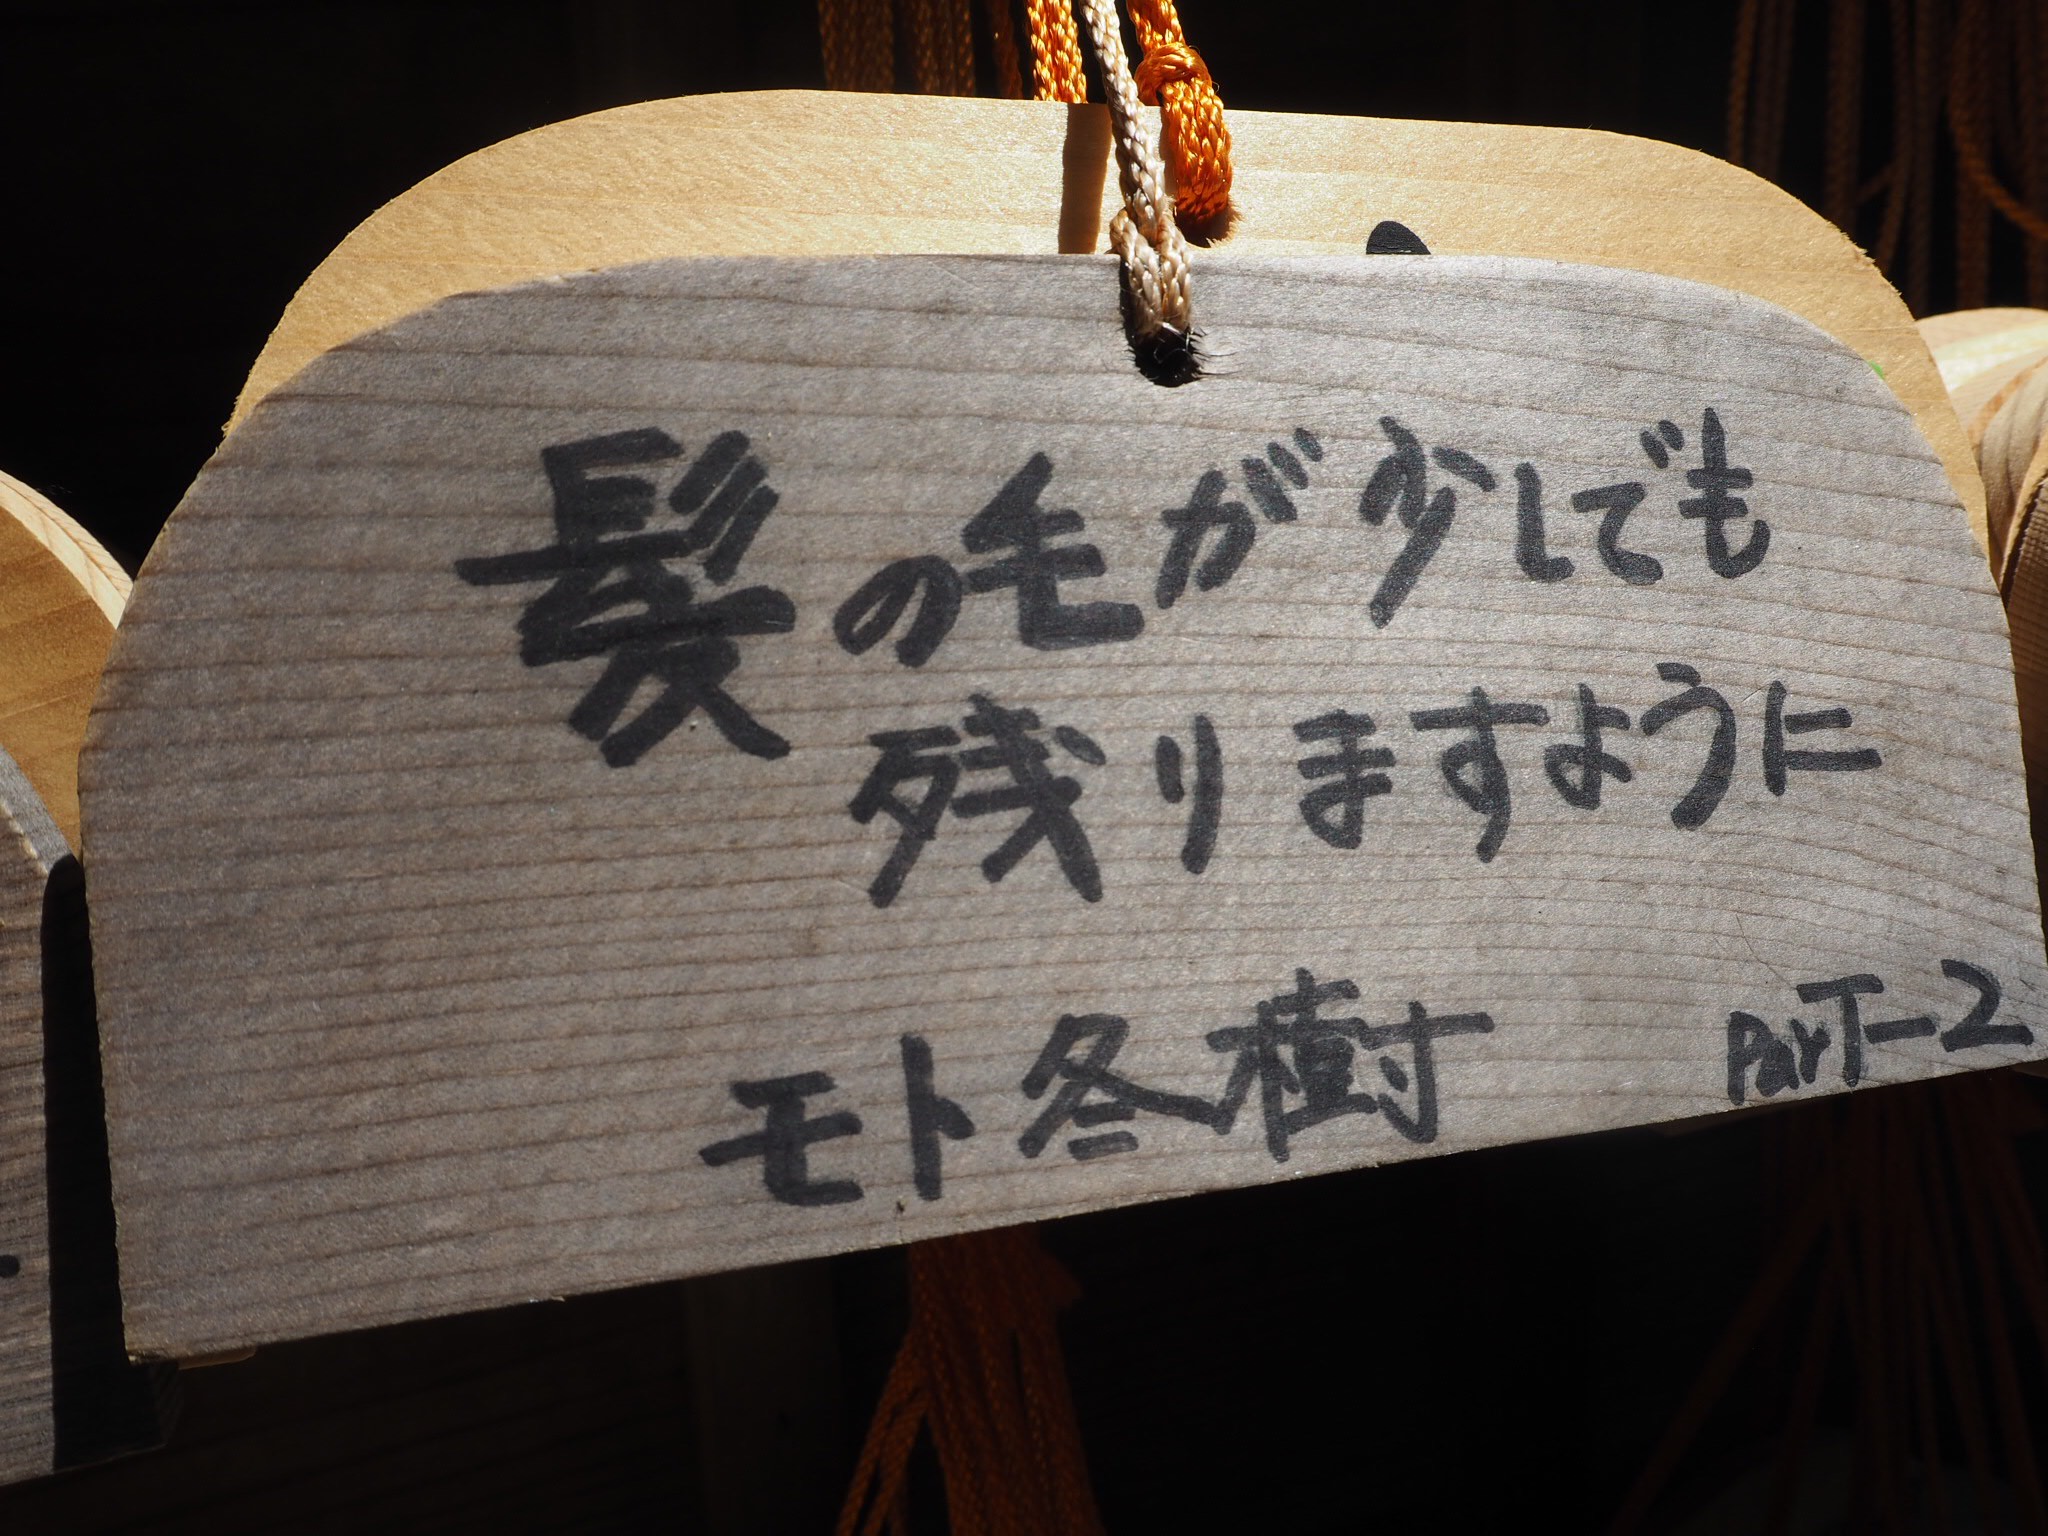 髪の毛が少しでも
残りますように
モト冬樹
ParT-2